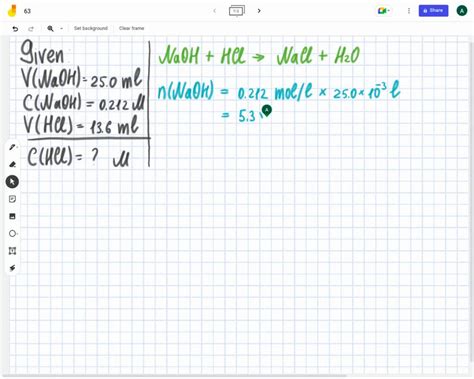 63
Set background
Clear frame
Share
A
Given
V(NaOH)= 25.0 ml
C(NaOH) = 0.212 M
V(HCl) = 13.6 ml
C(HCl) = ? M
NaOH + HCl → NaCl + H2O
n(NaOH) = 0.212 mol/l × 25.0 × 10⁻³ l
= 5.3
A